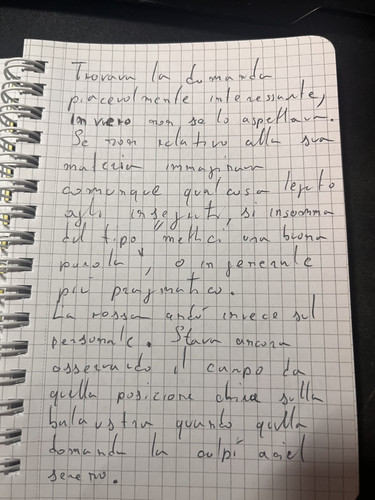 Trovava la domanda
piacevolmente interessante,
in vero non se lo aspettava.
Se non relativo alla sua
materia immaginava
comunque qualcosa legato
agli inseguiti, si insomma
del tipo "mettici una buona
parola", o in generale
più pragmatico.
La rossa andò invece sul
personale. Stava ancora
osservando il campo da
quella posizione china sulla
balaustra quando quella
domanda la colpì a ciel
sereno.